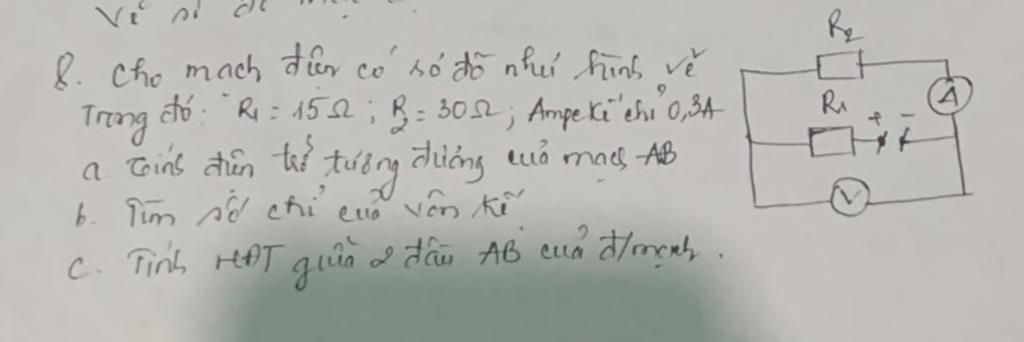 Vẽ
8. Cho mạch điện có sơ đồ như hình vẽ
Trong đó: R1 = 15Ω; R2 = 30Ω; Ampe kế chỉ 0,3A
a. Tính điện trở tương đương của mạch AB
b. Tìm số chỉ của vôn kế
c. Tính HĐT giữa 2 đầu AB của đ/mạch.
R2
A
R1
+ -
V